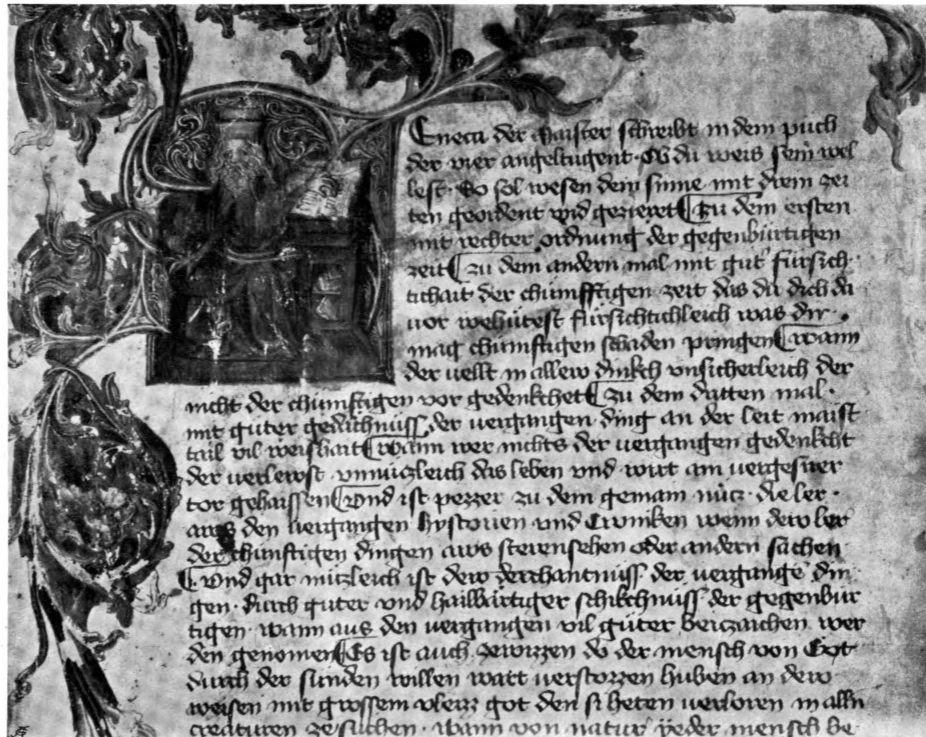 Eneca der Maister schreibt in dem puch
der vier angeltugent · Ob du weis sein wel
lest · So sol wesen dein sinne mit drein zei
ten geordent vnd gezieret Zu dem ersten
mit rechter ordnung der gegenbürtigen
zeit Zu dem andern mal mit gut fürsich
tichait der chünfftigen zeit das du dich da
vor wehütest fürsichtichleich was dir
mag chünftigen schaden pringen Wann
der vellt in allew dinkch vnsicherleich der
nicht der chünftigen vor gedenkchet Zu dem dritten mal ·
mit guter gedëchnüss der vergangen ding an der leit maist
tail vil weishait Wann wer nichts der vergangen gedenkcht
der verlewst vnnüczleich das leben vnd wirt ain vergessner
tor gehaissen Vnd ist pezzer zu dem gemain nücz · die ler ·
aws den vergangen hystorien vnd Croniken wenn dew ler
der chünftigen dingen aws sterensehen oder andern sachen
Vnd gar nüczleich ist dew derchantnüss · der vergange din
gen · durch guter vnd hailbärtiger schikchnüss der gegenbür
tigen · wann aus den vergangen vil güter beiczaichen wer
den genomen Es ist auch zewizzen do der mensch von Got
durch der sünden willen wart verstozzen huben an dew
weisen mit grossem vleizz got den si heten verloren in alln
creaturen ze suchen · wann von natur yeder mensch be